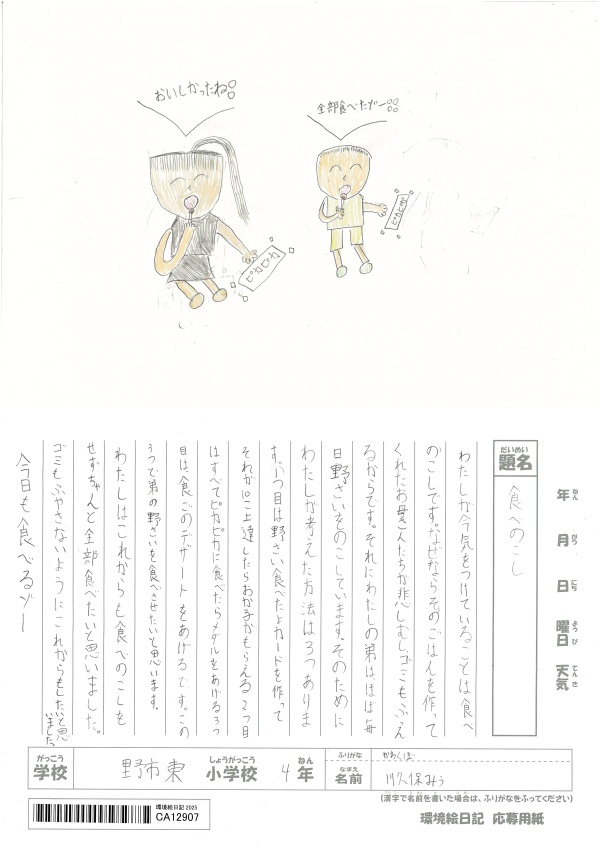 おいしかったね。。
全部食べたぞー。。
ピカピカ
ピカピカ
年 ねん
月 がつ
日 にち
曜日 ようび
天気 てんき
だいめい
題名
食べのこし
わたしが今気をつけていることは食べ
のこしです。なぜならそのごはんを作って
くれたお母さんたちが悲しむし、ゴミもふえ
るからです。それにわたしの弟はほぼ毎
日野さいをのこしています。そのために
わたしが考えた方法は3つありま
す。1つ目は野さい食べたよカードを作って
それが10こ上達したらお菓子がもらえる2つ目
はすべてピカピカに食べたらメダルをあげる3つ
目は、食ごのデザートをあげるです。この
3つで弟の野さいを食べさせたいと思います。
わたしはこれからも食べのこしを
せずちゃんと全部食べたいと思いました。
ゴミもふやさないようにこれからもしたいと思
いました。
今日も食べるゾー
がっこう
学校
野市東
しょうがっこう
小学校
4
ねん
年
ふりがな
かわくぼ
なまえ
名前
川久保みう
(漢字で名前を書いた場合は、ふりがなをふってください)
環境絵日記 2025
CA12907
環境絵日記 応募用紙